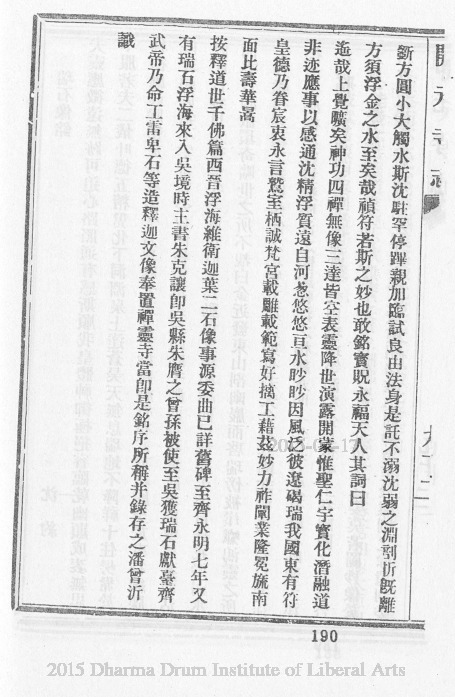 開元寺志
斲方圓小大觸水斯沈駐罕停蹕親加臨試良由法身是託不溺沈弱之淵剖折旣離
方須浮金之水至矣哉禎符若斯之妙也敢銘寶貺永福天人其詞曰
遙哉上覺曠矣神功四禪無像三達皆空表靈降世演露開蒙惟聖仁宇寶化潛融道
非迹應事以感通沈精浮質遠自河蔥悠悠亘水眇眇因風泛彼遼碣瑞我國東有符
皇德乃眷宸衷永言鷲室栖誠梵宮載雕載範寫好摛工藉茲妙力祚闡業隆冕旒南
面比壽華嵩
按釋道世千佛篇西晉浮海維衛迦葉二石像事源委曲已詳舊碑至齊永明七年又
有瑞石浮海來入吳境時主書朱克讓卽吳縣朱膺之曾孫被使至吳獲瑞石獻臺齊
武帝乃命工雷卑石等造釋迦文像奉置禪靈寺當卽是銘序所稱并錄存之潘曾沂
識
190
2015 Dharma Drum Institute of Liberal Arts